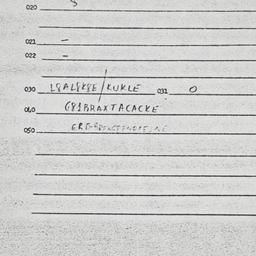 020 8
021 –
022 –
030 L8AL8K8E/KUKLE 031 0
040 G81BRAXTACACKE
050